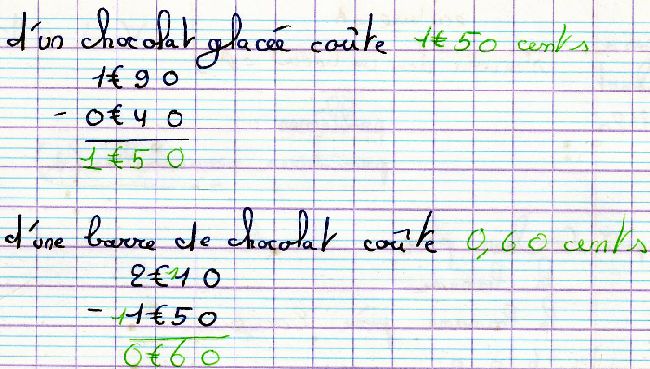 d'un chocolat glacée coûte 1€50 cents
1€90
- 0€40
1€50
d'une barre de chocolat coûte 0,60 cents
2€110
- 11€50
0€60